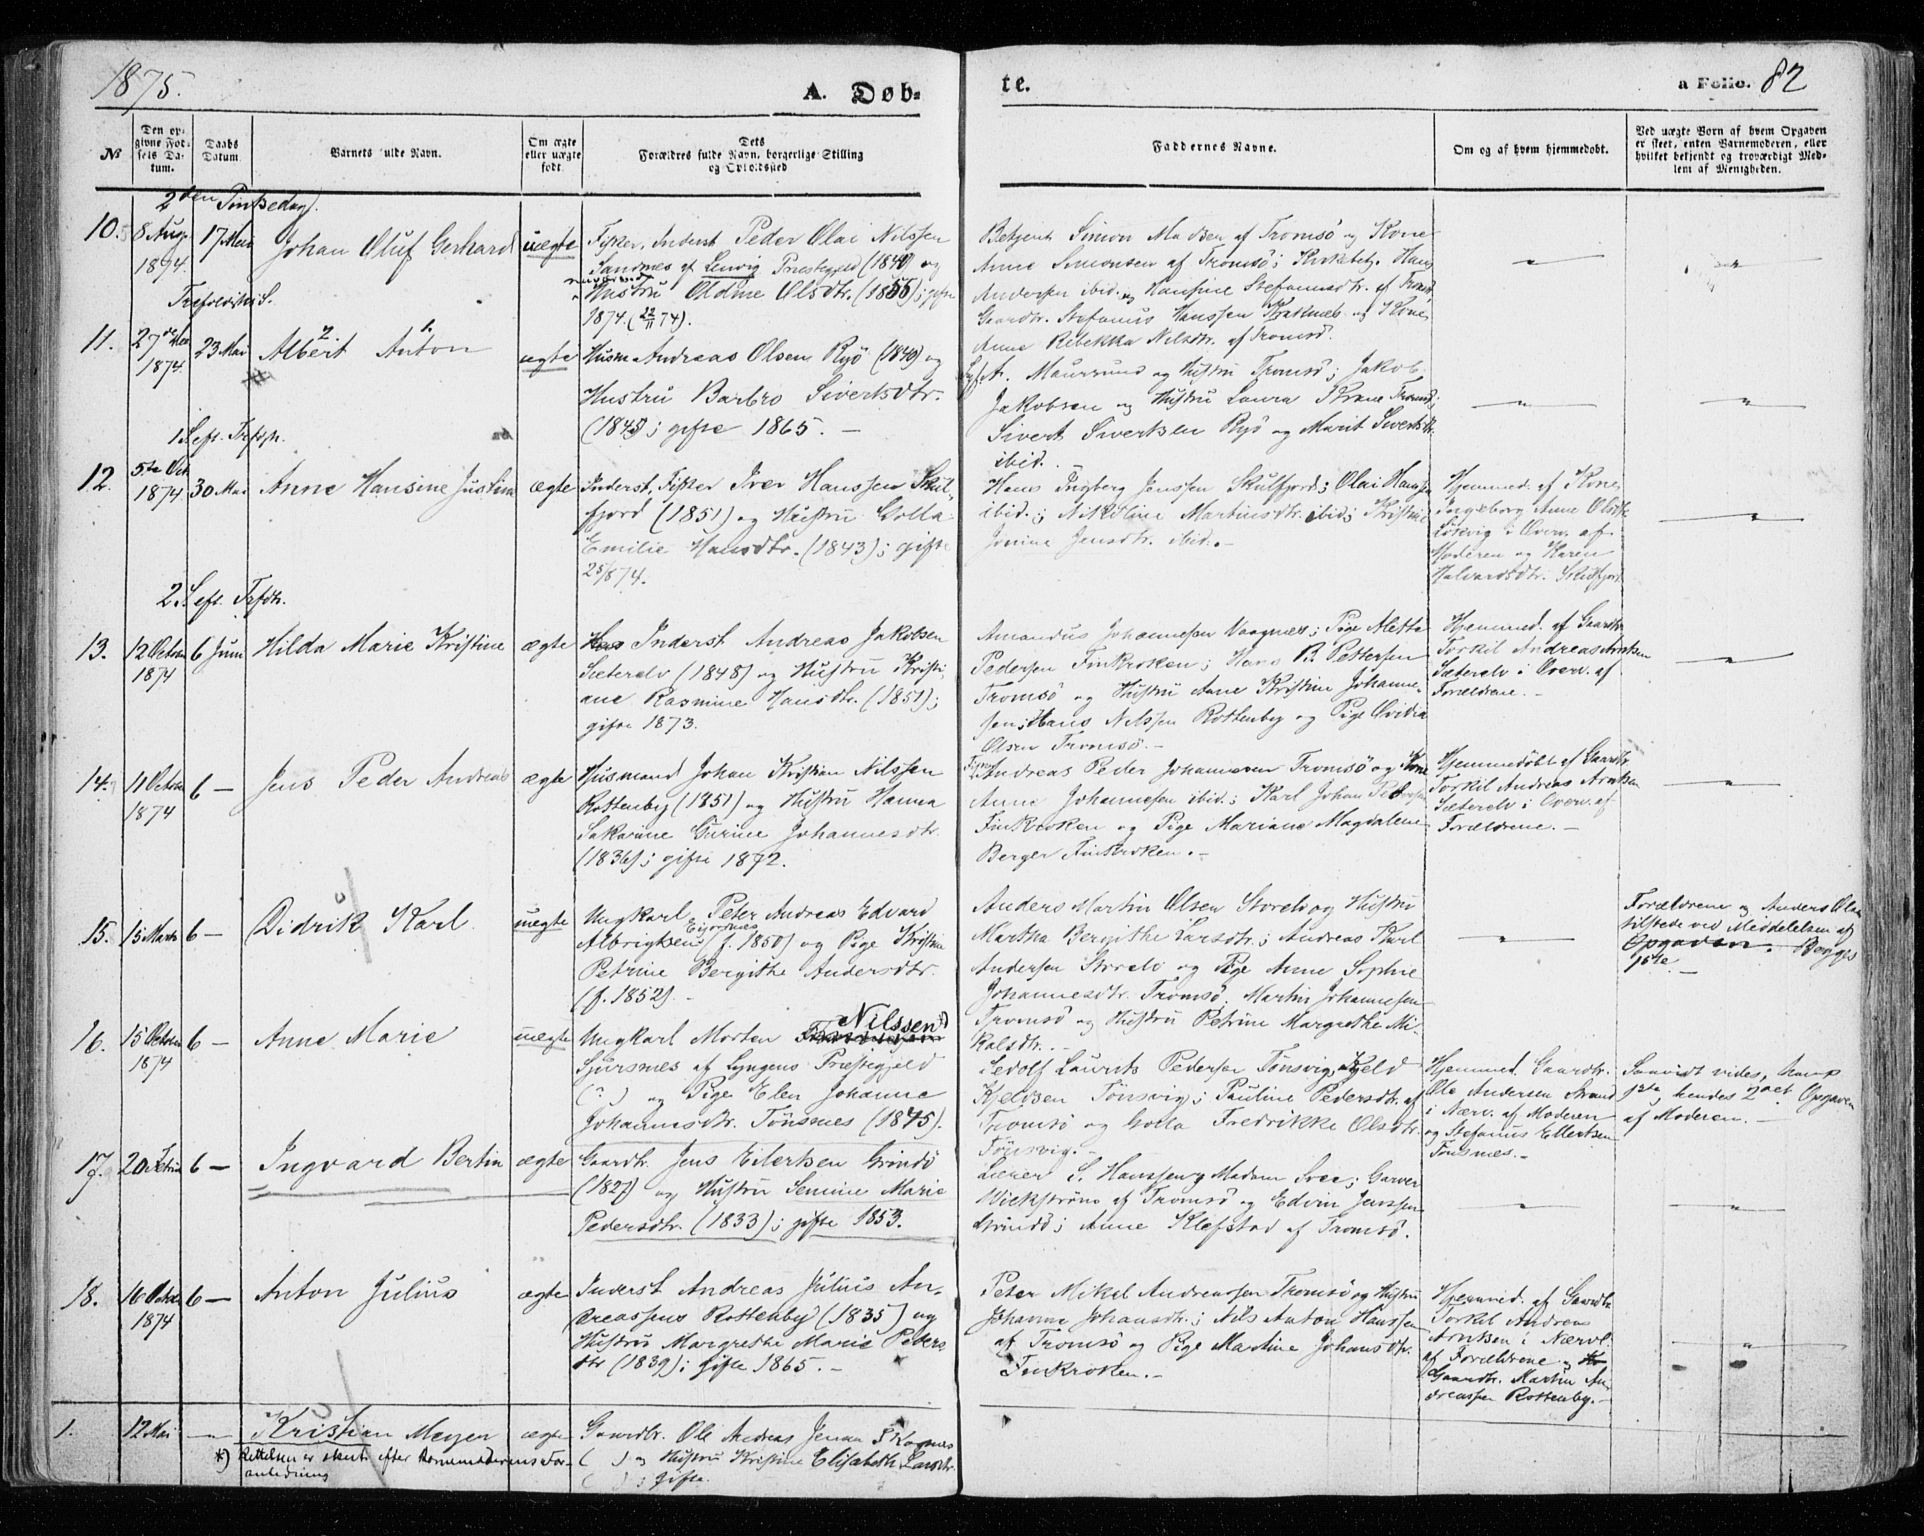 1875.
A. Døb-
te.
a Folio. 82
No
Den opgivne Fødsels Datum.
Daabs Datum.
Barnets fulde Navn.
Om ægte eller uægte født.
Dets Forældres fulde Navn, borgerlige Stilling og Opholdssted
Faddernes Navne.
Om og af hvem hjemmedøbt.
Ved uægte Børn af hvem Opgaven er skeet, enten Barnemoderen, eller hvilket bekjendt og troværdigt Medlem af Menigheden.
2den Pintsedag.
10.
8 Aug.
1874.
17 Mai
Johan Oluf Gerhard
uægte
Fisker, Inderst Peder Olai Nilssen
Sandnes af Lenvig Præstegjeld (1840) og
Hustru Oldine Olsdtr. (1855); gifte
1874. (22/11 74).
Betjent Simon Madsen af Tromsø og Kone
Anne Simonsen af Tromsø; Kirkebetj. Hans
Andersen ibid. og Hansine Stefanusdtr. af Tromsø,
Gaardbr. Stefanus Hanssen og Kone
Anne Rebekka Nilsdtr. af Tromsø.
Trefoldigh. S.
11.
1874.
23 Mai
2. 1.
Albert Anton
ægte
Husm. Andreas Olsen Ryø (1840) og
Hustru Barbro Sivertsdtr.
(1845); gifte 1865. —
A. Maursund og Hustru Tromsø; Jakob
Jakobsen og Hustru Laura Thrane Tromsø;
Sivert Sivertsen Ryø og Marit Sivertsdtr.
ibid.
1 S. eft. Trefgh.
12.
5te Oct.
1874
30 Mai
Anne Hansine Justine
ægte
Inderst, Fisker Iver Hanssen Skul-
fjord (1851) og Hustru Golla
Emilie Hansdtr. (1843); gifte
25/8 74.
Hans Ingberg Jenssen Skulfjord; Olai Hanssen
ibid.; Nikoline Martinusdtr. ibid; Kristine
Jonine Jensdtr. ibid. -
Hjemmed. af Kone
Ingeborg Anne Olsdtr.
Løkvig i Overv. af
Moderen og Maren
Halvardsdtr. Skulfjord
2 S. eft. Trfdh.
13.
12 October
1874
6 Juni
Hilda Marie Kristine
ægte
Inderst Andreas Jakobsen
Sæterelv (1848) og Hustru Kristi-
ane Rasmine Hansdtr. (1851);
gifte 1873.
Amandus Johannesen Vaagnes; Pige Aletta
Pedersen Finkroken; Hans B. Pettersen
Tromsø og Hustru Anne Kristine Johanne-
sen; Hans Nilssen Rottenby og Pige Ovidia
Olsen Tromsø. -
Hjemmed. af Gaardbr.
Torkil Andreas Arntsen
Sæterelv i Overv. af
Forældrene. -
14.
11 October
1874
6 —
Jens Peder Andreas
ægte
Husmand Johan Kristian Nilssen
Rottenby (1851) og Hustru Hanna
Sakarine Gurine Johannesdtr.
(1836); gifte 1872.
Andreas Peder Johannesen Tromsø og Kone
Anne Johannesen ibid.; Karl Johan Pedersen
Finkroken og Pige Mariane Magdalene
Berger Finkroken. -
Hjemmedøbt af Gaardbr.
Torkil Andreas Arntsen
Sæterelv i Overv. af
Forældrene. -
15.
15 Marts
6 —
Didrik Karl
uægte
Ungkarl Peter Andreas Edvard
Albrigtsen (f. 1850) og Pige Kristine
Petrine Bergithe Andersdtr.
(f. 1852). -
Anders Martin Olsen Storelv og Hustru
Martha Bergithe Larsdtr.; Andreas Karl
Andersen Storelv og Pige Anne Sophie
Johannesdtr. Tromsø. Martin Johannesen
Tromsø og Hustru Petrine Margrethe Mi-
kalsdtr. -
Forældrene og Anders Olsen
tilstede ved Meddelelsen af
Opgaven. Begges
1ste —
16.
15 October
1874
6 —
Anne Marie
uægte
Ungkarl Morten Nilssen*)
Gjursnes af Lyngens Præstegjeld
(?) og Pige Elen Johanne
Johannesdtr. Tönsnes (1845).
Sedolf Laurits Pedersen Tönsvig, Kjeld
Kjeldsen Tönsvig; Pauline Pedersdtr. af
Tromsø og Golla Fredrikke Olsdtr.
Tönsvig. -
Hjemmed. Gaardbr.
Ole Andersen Strand
i Nærv. af Moderen
og Stefanus Ellertsen
Tönsnes. -
Saavidt vides, hans
1ste, hendes 2det Opgaven
af Moderen. -
17.
20 Febru
6 —
Ingvard Bertin
ægte
Gaardbr. Jens Eilertsen Grindö
(1827) og Hustru Semine Marie
Pedersdtr. (1833); gifte 1853.
Lærer L. Hanssen og Madam; Garver
Wickstrøm af Tromsø og Edvin Jenssen
Grindö; Anne Klefstad af Tromsø.
18.
16 October
1874
6 —
Anton Julius
ægte
Inderst Andreas Julius An-
dreassens Rottenby (1835) og
Hustru Margrethe Marie Peders
dtr (1839); gifte 1865. -
Peter Mikal Andreassen Tromsø og Hustru
Johanna Johansdtr.; Nils Anton Hanssen
af Tromsø og Pige Martine Johansdtr.
Finkroken. -
Hjemmed. af Gaardbr.
Torkil Andreas
Arntsen i Nærv.
af Forældrene og
Gaardbr. Martin An-
dreassen Rottenby. -
1.
12 Mai
Kristian Meyer
ægte
Gaardbr. Ole Andreas Jensen
( ) og Hustru Kristine Elisabeth Larsdtr.
( ); gifte.
*) Rettelsen er skeet efter Barnemoderens For-
anledning